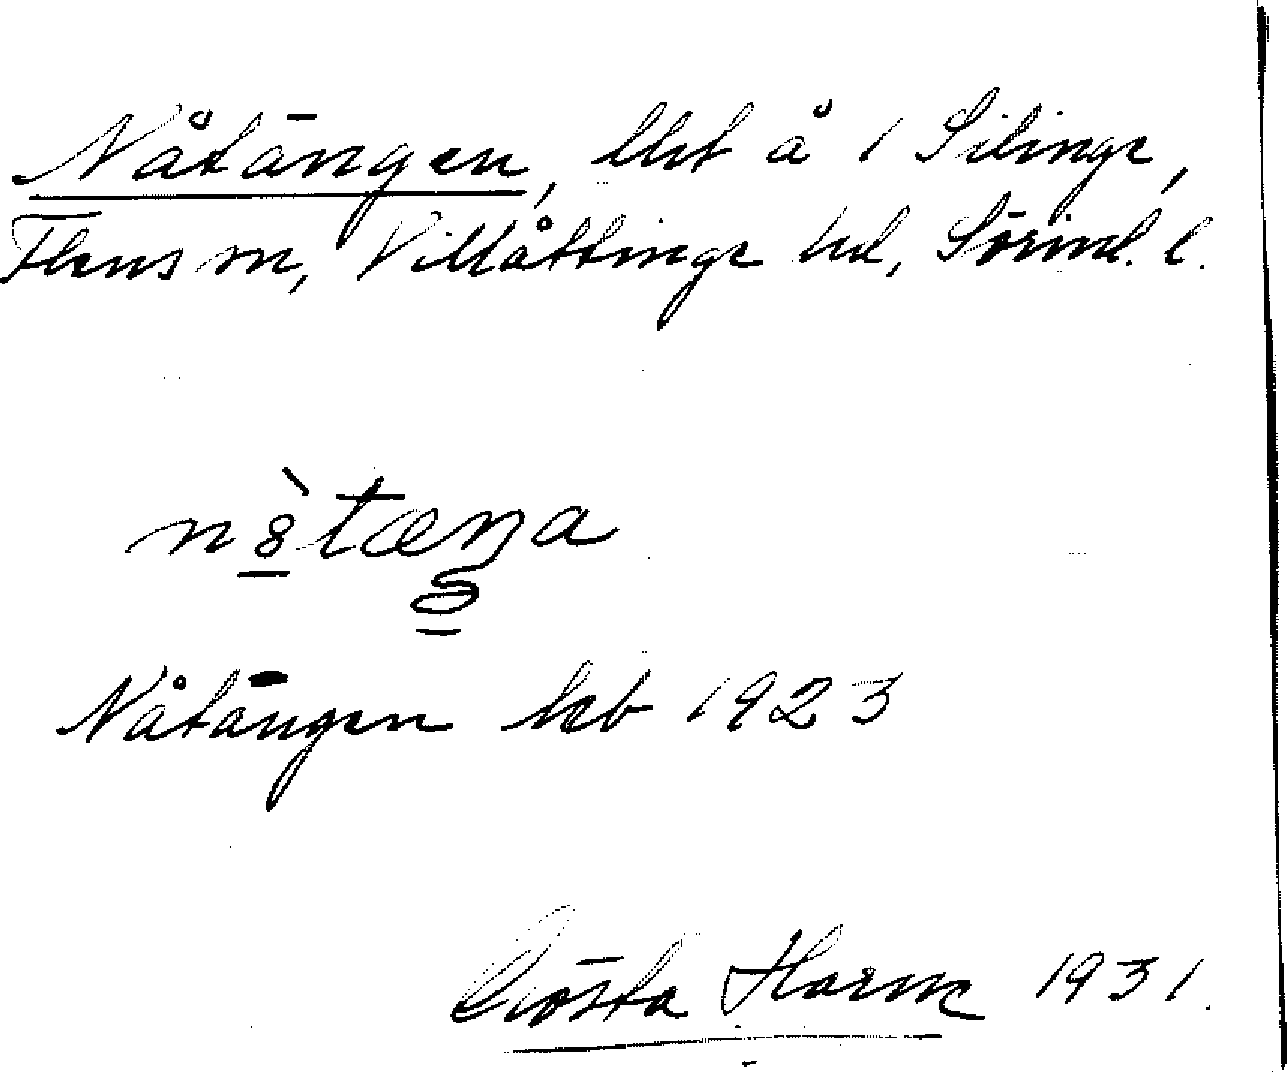 Nåtängen, lht å 1 Silinge,
Flens sn, Villåttinge hd, Sörml. l.
nòtæŋa
Nåtängen kb 1923
Gösta Harme 1931.